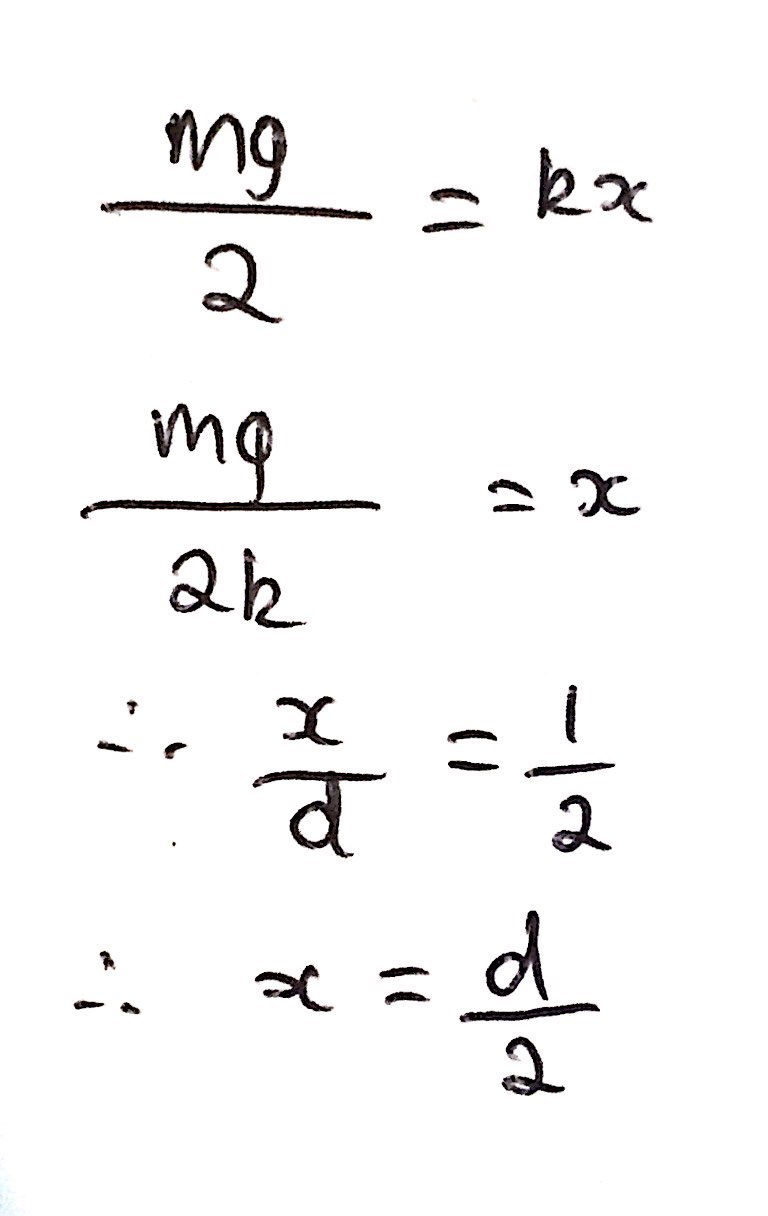 mg/2 = kx
mg/2k = x
∴ x/d = 1/2
∴ x = d/2